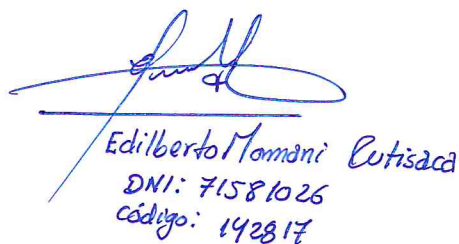 Edilberto Mamani Cutisaca
DNI: 71581026
código: 142817